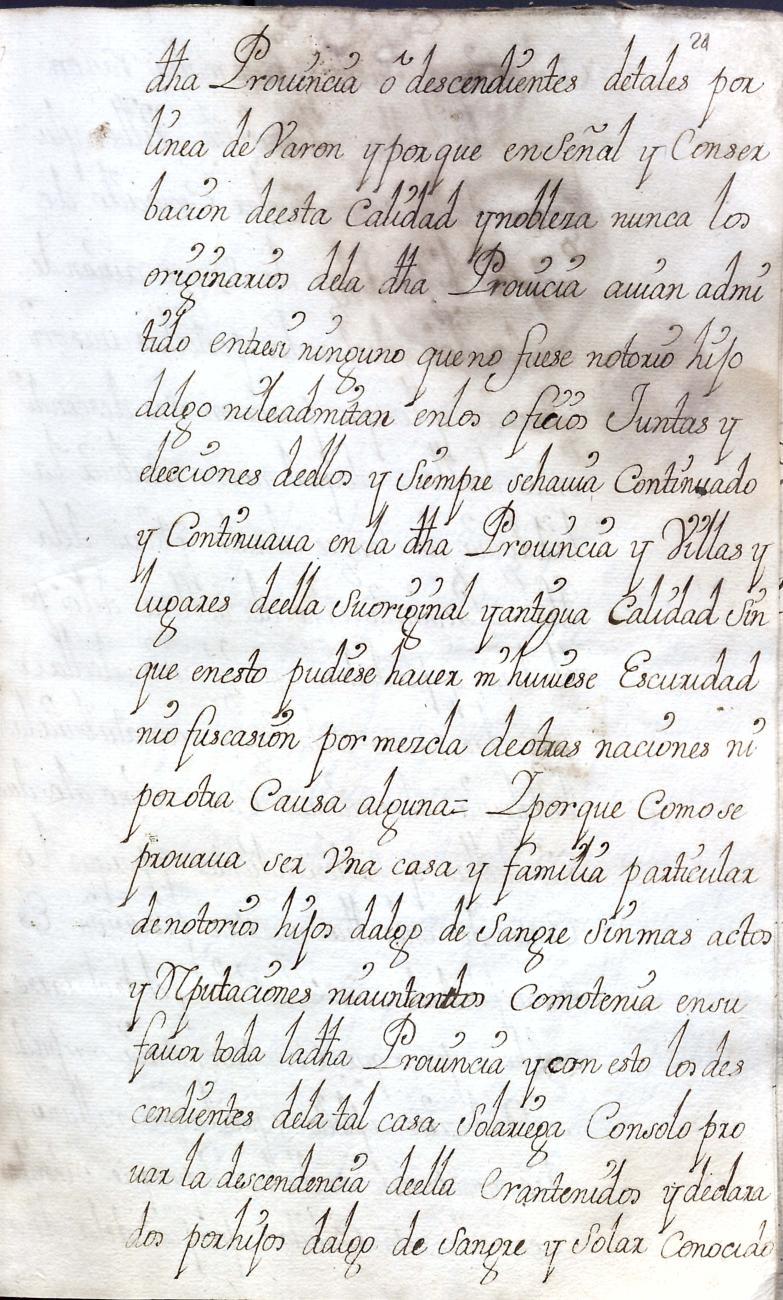 21
dha Prouincia o descendientes detales por
linea de Varon yporque enSeñal y Conser
bacion deesta Calidad ynobleza nunca los
originarios dela dha Prouicia auian admi
tido entresi ninguno queno fuese notorio hijo
dalgo nileadmitan enlos oficios Juntas y
elecciones deellos y Siempre sehauia Continuado
y Continuaua en la dha Prouincia y Villas y
lugares deella Suoriginal yantigua Calidad Sin
que enesto pudiese hauer ni huuiese Escuridad
nio fuscasion por mezcla deotras naciones ni
porotra Causa alguna= Yporque Como se
prouaua ser Vna casa y familia particular
denotorios hijos dalgo de Sangre Sinmas actos
y Rputaciones niauntantos Comotenia ensu
fauor toda ladha Prouincia y con esto los des
cendientes dela tal casa Solariega Consolo pro
uar la descendencia deella Erantenidos y declara
dos porhijos dalgo de Sangre y Solar Conocido